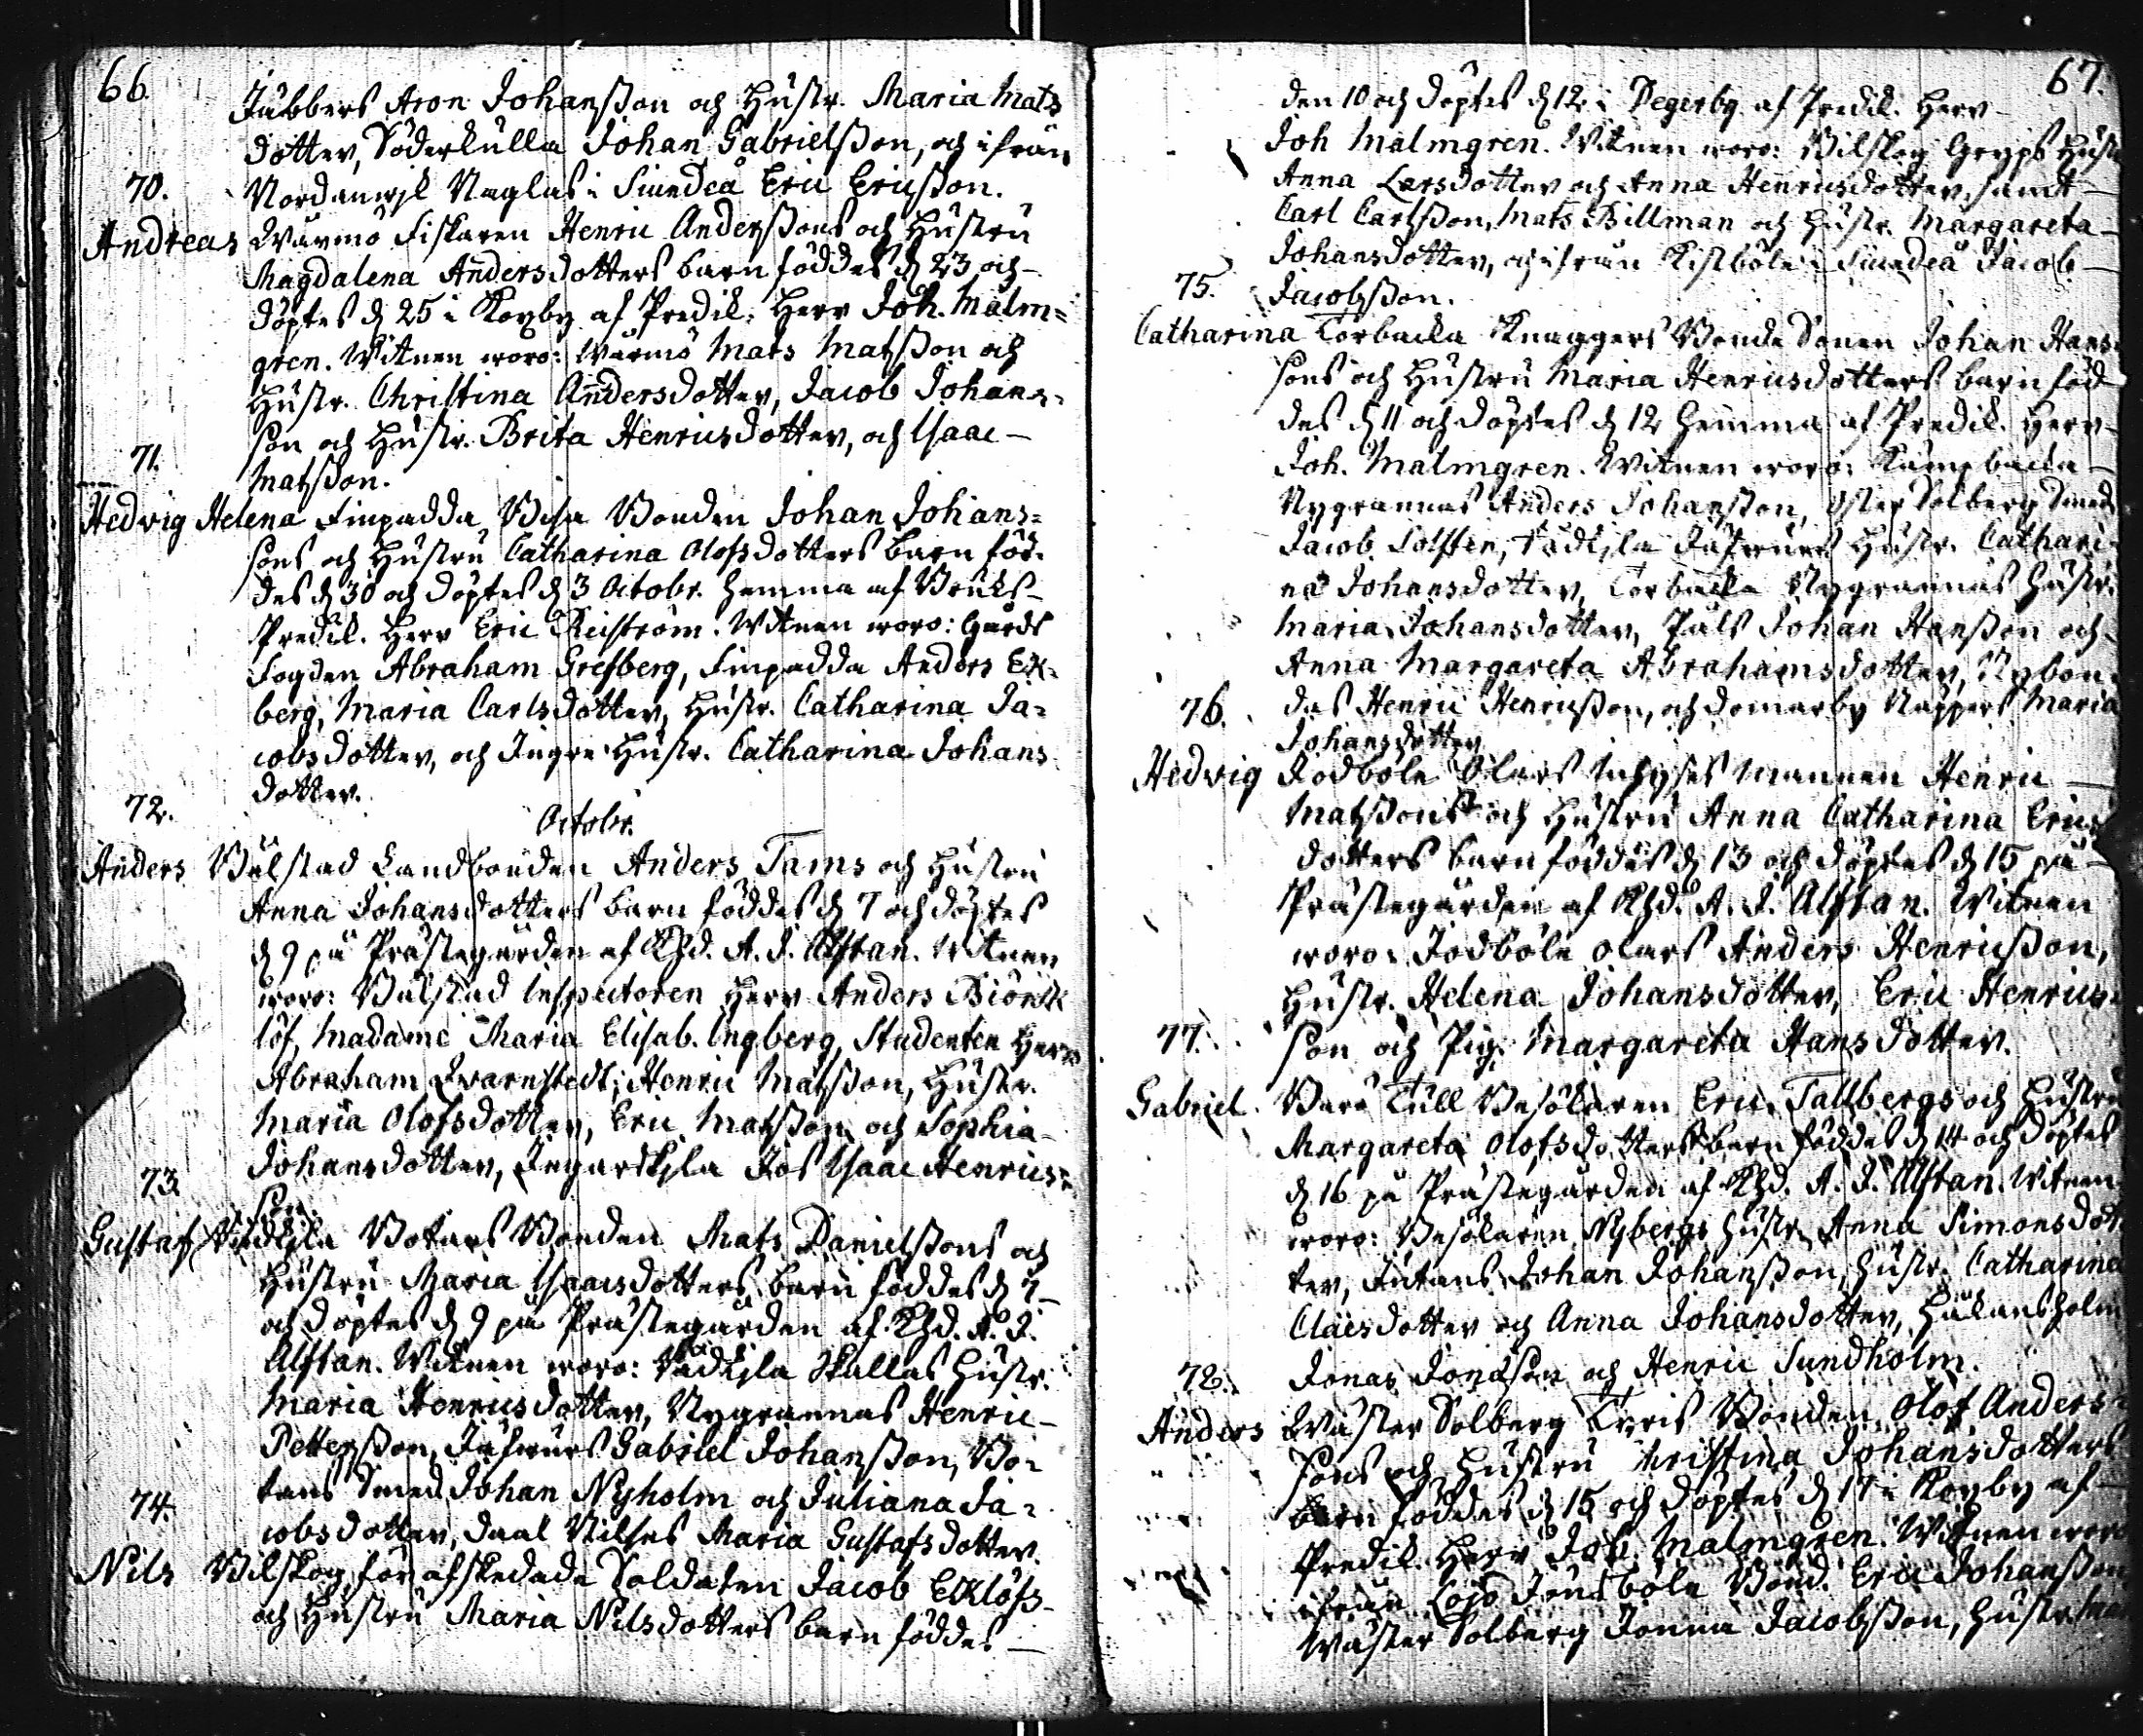 66.
Jubbers Aron Johansson och Hustr. Maria Mats
dotter, Söderkulla Johan Gabrielsson, och ifrån
70.
Nordanwik Naglas i Siundeå Eric Ericsson.
Andreas Wärmö Fiskaren Henric Anderssons och Hustru
Magdalena Andersdotters barn föddes d 23 och
döptes d 25 i Kopby af Predik. Herr Joh. Malm=
gren. Witnen woro: Wärmö Mats Matsson och
Hustr. Christina Andersdotter, Jacob Johans=
son och Hustr. Brita Henricsdotter, och Isaac
71.
Matsson.
Hedvig Helena Finpadda Wisa Bonden Johan Johans=
sons och Hustru Catharina Olofsdotters barn föd=
des d 30 och döptes d 3 Octobr. hemma af Bruks-
Predik. Herr Eric Reiström. Witnen woro: Gårds
Fogden Abraham Grefberg, Finpadda Anders Ek=
berg, Maria Carlsdotter, Hustr. Catharina Ja=
cobsdotter, och Ingre Hustr. Catharina Johans
dotter.
72.
Octobr.
Anders Bålstad Landbonden Anders Tams och Hustru
Anna Johansdotters barn föddes d 7 och döptes
d 9 på Prästegården af Khd. A. J. Alftan. Witnen
woro: Bålstad Inspectoren Herr Anders Biörk
löf, Madame Maria Elisab. Ingberg, Studenten Herr
Abraham Qvarnstedt, Henric Matsson, Hustr.
Maria Olofsdotter, Eric Matsson och Sophia
Johansdotter, Ingarskila Jos Isaac Henrics=
73.
son.
Gustaf Wädkila Botars Bonden Mats Danielssons och
Hustru Maria Isaacsdotters barn föddes d 7
och döptes d 9 på Prästegården af Khd. A. J.
Alftan. Witnen woro: Wädkila Skallas Hustr.
Maria Henricsdotter, Nygrannas Henric
Pettersson, Jäfwers Gabriel Johansson, Bo=
tars Smed Johan Nyholm och Juliana Ja=
74.
cobsdotter, Daal Nilses Maria Gustafsdotter.
Nils Wilskog för afskedade Soldaten Jacob Eklöfs
och Hustru Maria Nilsdotters barn föddes
67.
den 10 och döptes d 12 i Degerby af Predik. Herr
Joh Malmgren. Witnen woro: Wilskog Gryps Hustr
Anna Larsdotter och Anna Henricsdotter, samt
Carl Carlsson, Mats Billman och Hustr. Margareta
Johansdotter, och ifrån Kistböle i Siundeå Jacob
75.
Jacobsson.
Catharina Torbacka Knaggers Bonde Sonen Johan Hans=
sons och Hustru Maria Henricsdotters barn föd
des d 11 och döptes d 12 hemma af Predik. Herr
Joh. Malmgren. Witnen woro: Kämpbacka
Nygrannas Anders Johansson, Öster Solberg Smed
Jacob Solsten, Wädkila Jäfwers Hustr. Cathari=
na Johansdotter, Torbacka Nygrannas Hustr.
Maria Johansdotter, Påls Johan Hansson och
Anna Margareta Abrahamsdotter, Nybon=
76.
das Henric Henricsson, och Domarby Nappers Maria
Johansdotter.
Hedvig Jodböle Olars Inhyses Mannen Henric
Matssons och Hustru Anna Catharina Erics
dotters barn föddes d 13 och döptes d 15 på
Prästegården af Khd. A. J. Alftan. Witnen
woro: Jodböle Olars Anders Henricsson,
Hustr. Helena Johansdotter, Eric Henrics=
77.
son och Pig. Margareta Hansdotter.
Gabriel. Barö Tull Besökaren Eric Tallbergs och Hustru
Margareta Olofsdotters barn föddes d 14 och döptes
d 16 på Prästegården af Khd. A. J. Alftan. Witnen
woro: Besökaren Nybergs Hustr. Anna Simonsdot
ter, Jutans Johan Johansson, Hustr. Catharina
Claesdotter och Anna Johansdotter, Håkansholm
78.
Jonas Jonasson och Henric Sundholm.
Anders Wäster Solberg Tyris Bonden Olof Anders=
sons och Hustru Christina Johansdotters
barn föddes d 15 och döptes d 17 i Kopby af
Predik. Herr Joh. Malmgren. Witnen woro
ifrån Lojo Jönsböle Bond. Eric Johansson
Wäster Solberg Jonna Jacobsson, Hustr. Mar